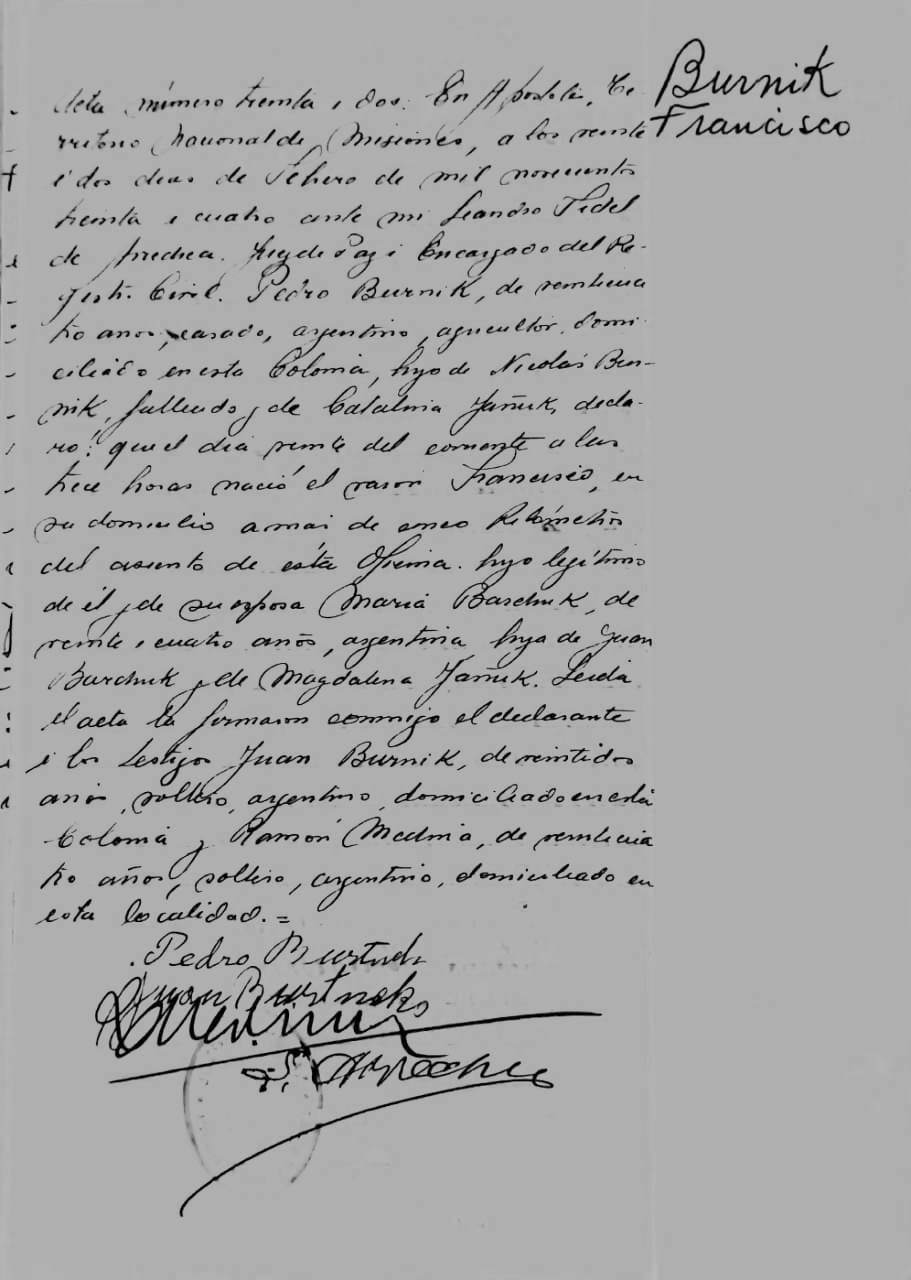 Burnik
Francisco
Acta número treinta i dos. En Apóstoles, Te-
rritorio Nacional de Misiones, a los veinte
i dos dias de Febrero de mil novecientos
treinta i cuatro ante mi Leandro Fidel
de Juez de Paz i Encargado del Re-
gistro Civil. Pedro Burnik, de veinticua
tro anos, casado, argentino, agricultor, domi-
ciliado en esta Colonia, hijo de Nicolás Bur-
nik, fallecido y de Catalina Jañuk, decla-
ró: que el dia veinte del corriente a las
trece horas nació el varón Francisco, en
su domicilio a mas de cinco Kilómetros
del asiento de ésta Oficina. hijo legítimo
de él y de su esposa Maria Barchuk, de
veinte i cuatro años, argentina, hija de Juan
Barchuk y de Magdalena Jañuk. Leida
el acta la firmaron conmigo el declarante
i los testigos Juan Burnik, de veintidos
años, soltero, argentino, domiciliado en esta
Colonia y Ramón Medina, de veinticua
tro años, soltero, argentino, domiciliado en
esta localidad. =
Pedro
Juan